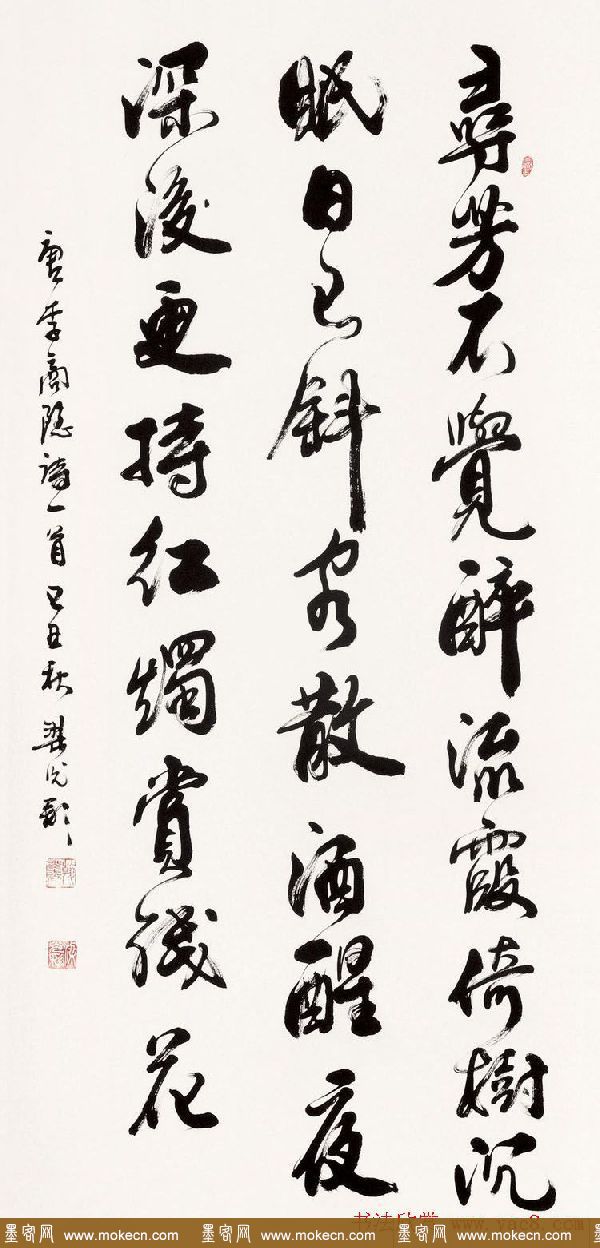 尋芳不覺醉流霞倚樹沉
眠日已斜客散酒醒夜
深後更持紅燭賞殘花
唐李商隐詩一首 己丑秋
书法欣赏 www.yac8.com
墨客网 www.mokecn.com 墨客网 www.mokecn.com 墨客网 www.mokecn.com